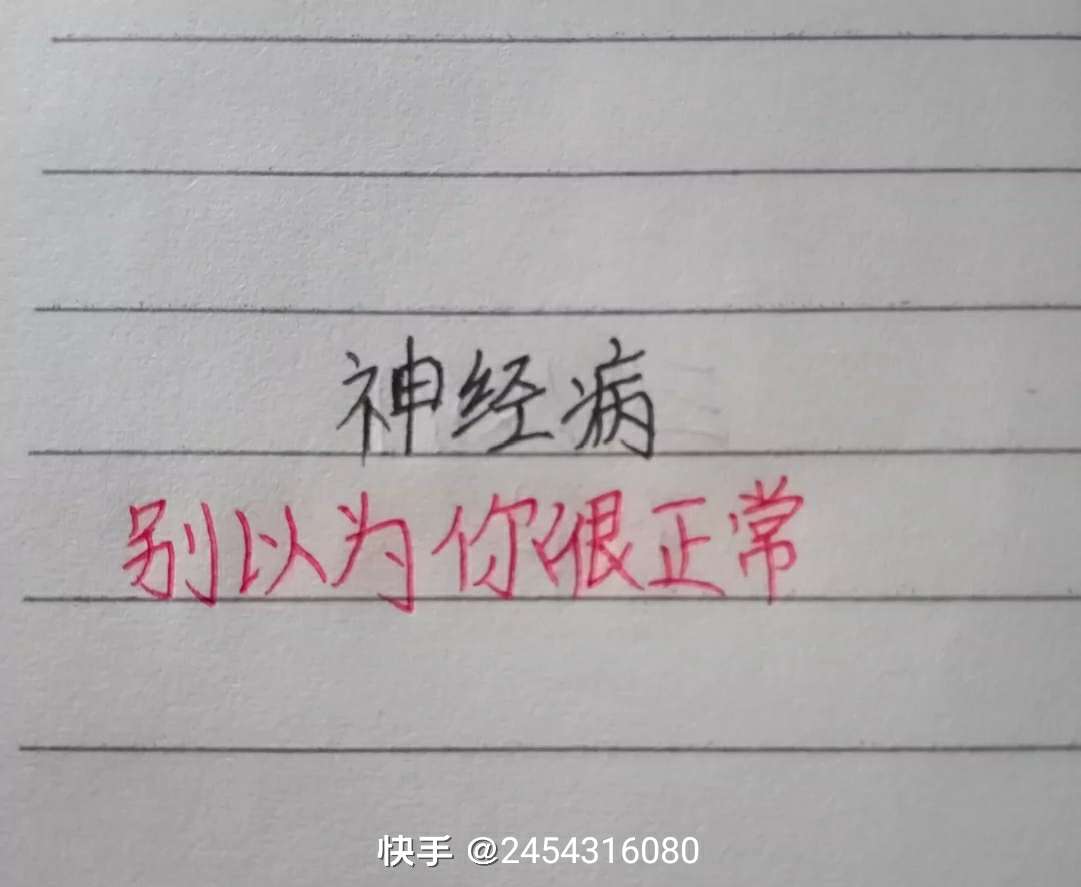 神经病
别以为你很正常
快手 @2454316080